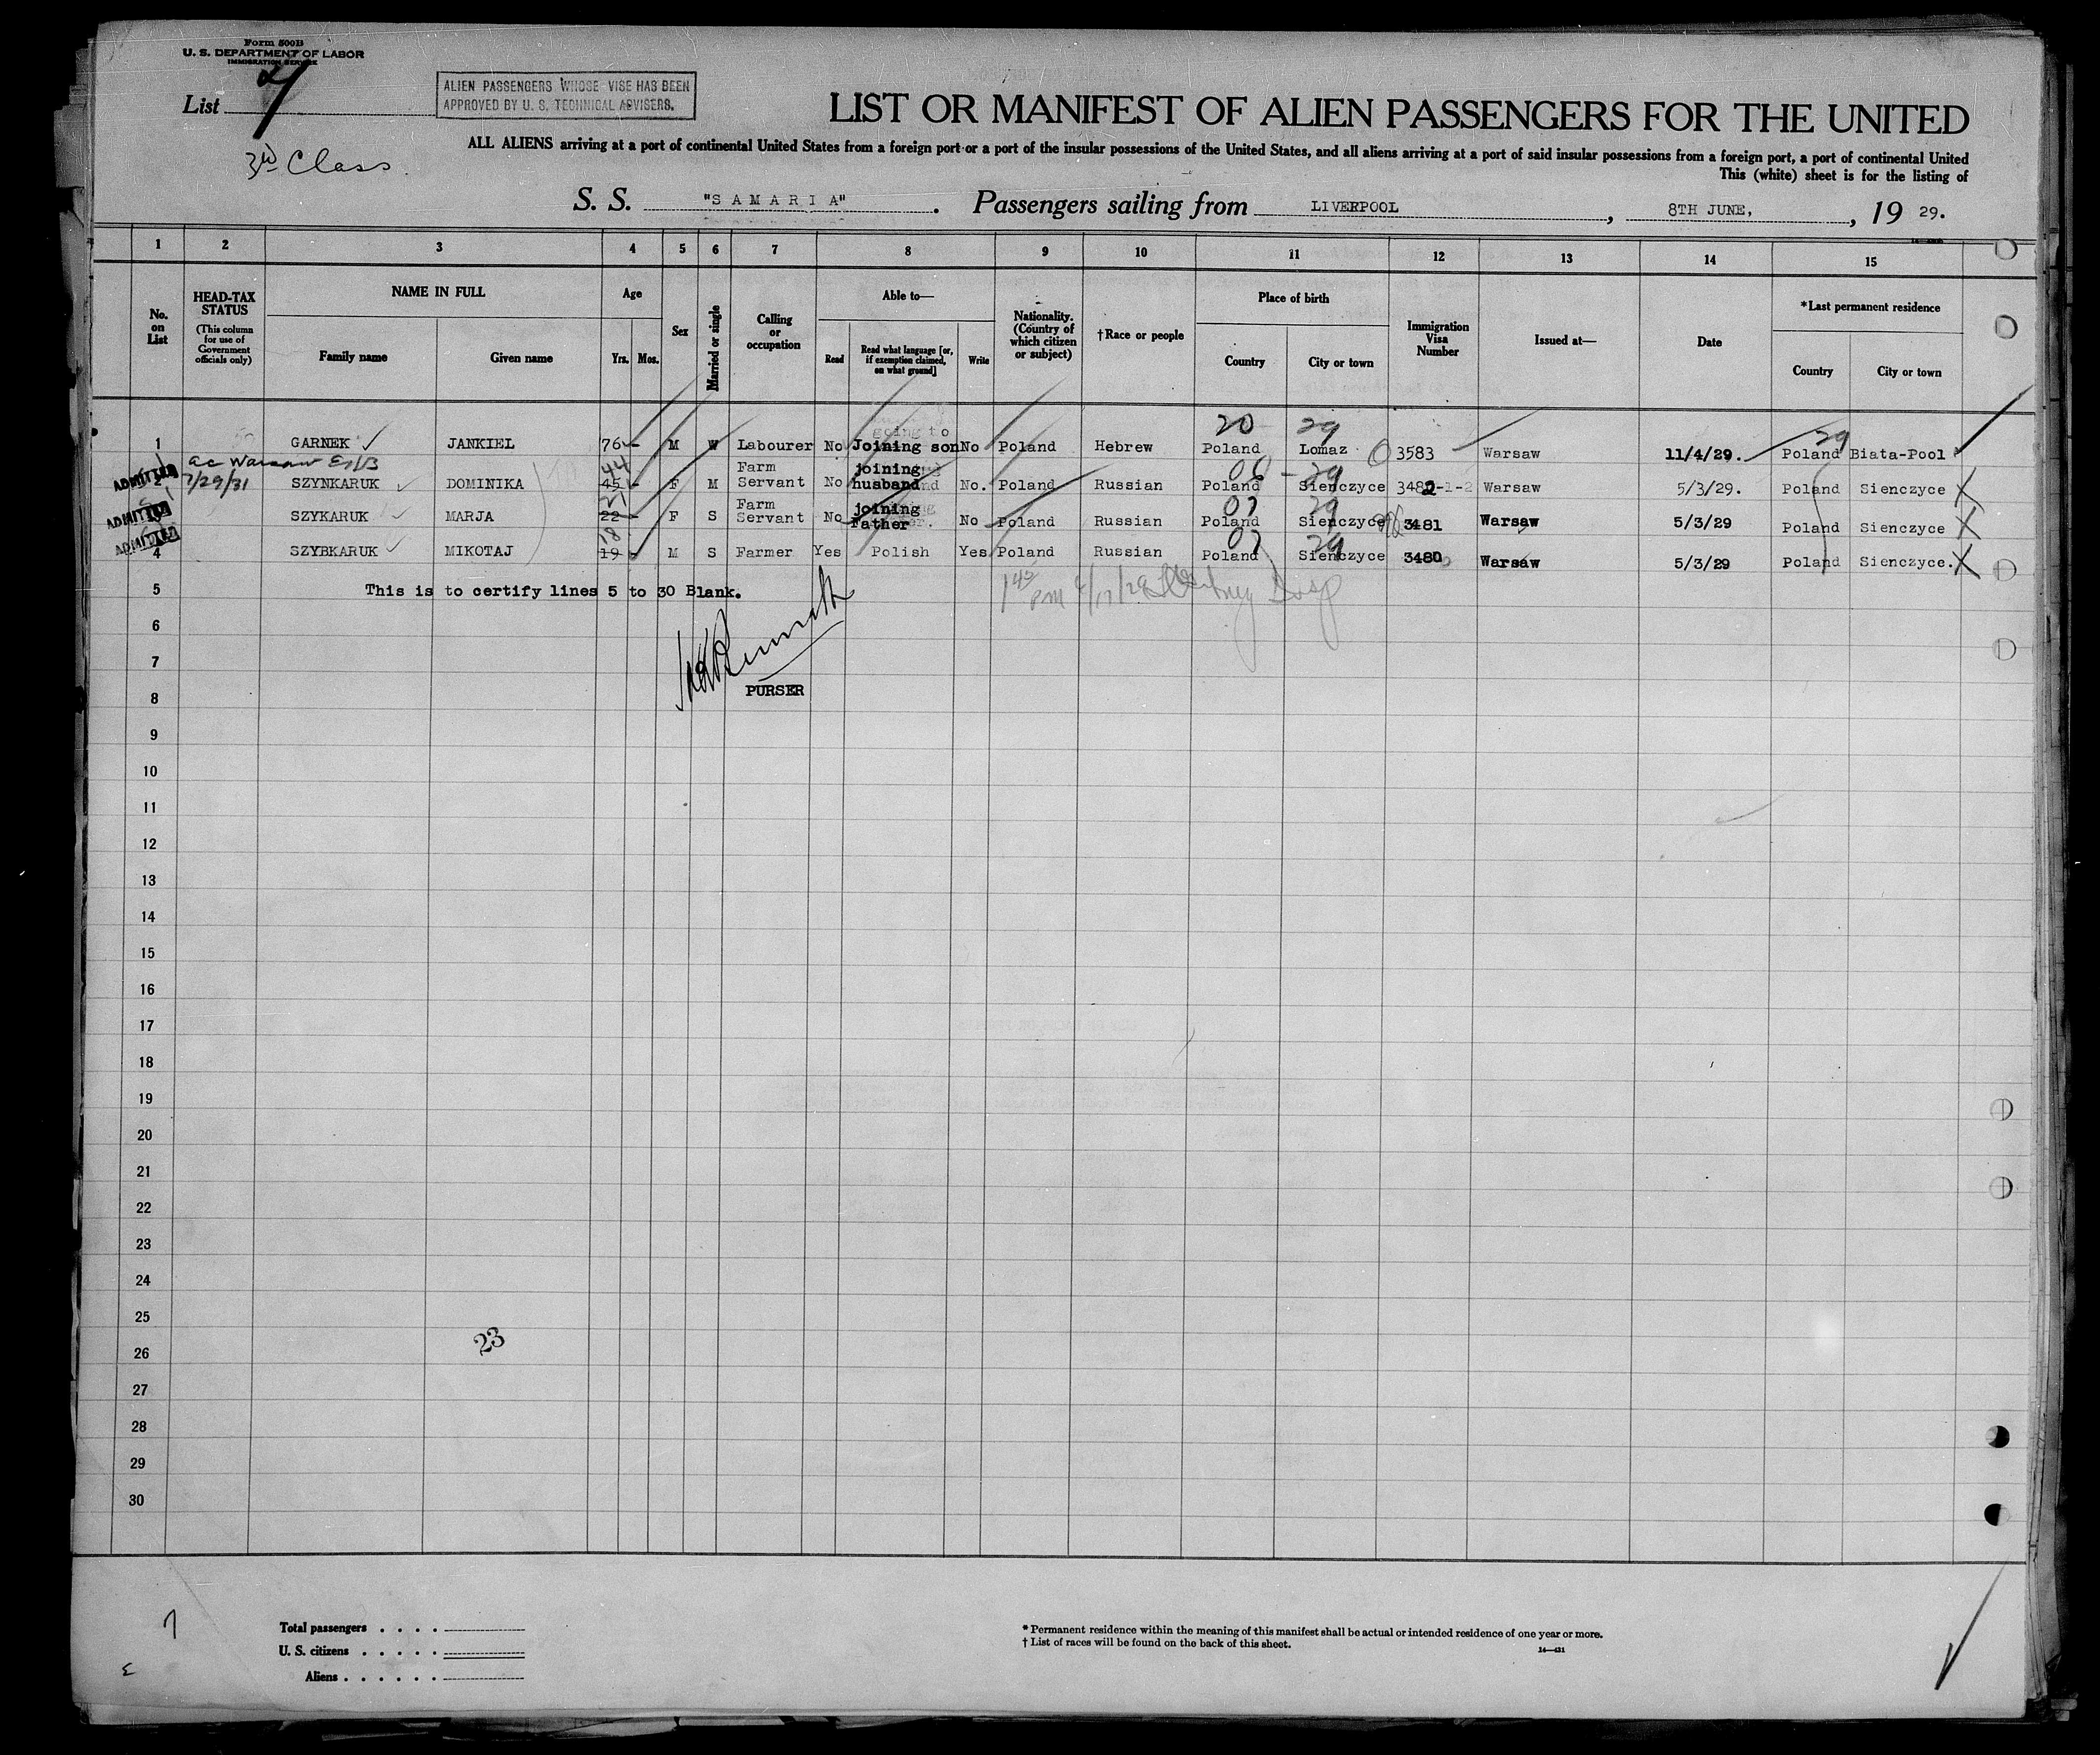 Form 500B
U. S. DEPARTMENT OF LABOR
IMMIGRATION SERVICE
List
3rd Class.
ALIEN PASSENGERS WHOSE VISE HAS BEEN
APPROVED BY U. S. TECHNICAL ADVISERS.
LIST OR MANIFEST OF ALIEN PASSENGERS FOR THE UNITED
ALL ALIENS arriving at a port of continental United States from a foreign port or a port of the insular possessions of the United States, and all aliens arriving at a port of said insular possessions from a foreign port, a port of continental United
This (white) sheet is for the listing of
S. S. "SAMARIA". Passengers sailing from LIVERPOOL, 8TH JUNE, 19 29.
1 2 3 4 5 6 7 8 9 10 11 12 13 14 15
No. on List
HEAD-TAX STATUS
(This column for use of Government officials only)
NAME IN FULL
Family name Given name
Age
Yrs. Mos.
Sex
Married or single
Calling or occupation
Able to—
Read Read what language [or, if exemption claimed, on what ground] Write
Nationality. (Country of which citizen or subject)
†Race or people
Place of birth
Country City or town
Immigration Visa Number
Issued at—
Date
*Last permanent residence
Country City or town
20 29 29
going to
1 GARNEK JANKIEL 76 - M W Labourer No Joining son No Poland Hebrew Poland Lomaz 3583 Warsaw 11/4/29. Poland Biata-Pool
ac Warsaw
7/29/31
44 06 - 29
ADMITTED 2 SZYNKARUK DOMINIKA 45 - F M Farm Servant No joining husband No. Poland Russian Poland Sienczyce 3482-1-2 Warsaw 5/3/29. Poland Sienczyce X
21 07 29
ADMITTED SZYKARUK MARJA 22 - F S Farm Servant No joining Father No Poland Russian Poland Sienczyce 3481 Warsaw 5/3/29 Poland Sienczyce X
18 07 29
ADMITTED 4 SZYBKARUK MIKOTAJ 19 - M S Farmer Yes Polish Yes Poland Russian Poland Sienczyce 3480 Warsaw 5/3/29 Poland Sienczyce. X
5 This is to certify lines 5 to 30 Blank.
PM 6/17/29
6
7
PURSER
8
9
10
11
12
13
14
15
16
17
18
19
20
21
22
23
24
25
23
26
27
28
29
30
Total passengers . . . .
U. S. citizens . . . . .
Aliens . . . . . .
* Permanent residence within the meaning of this manifest shall be actual or intended residence of one year or more.
† List of races will be found on the back of this sheet.
14—421